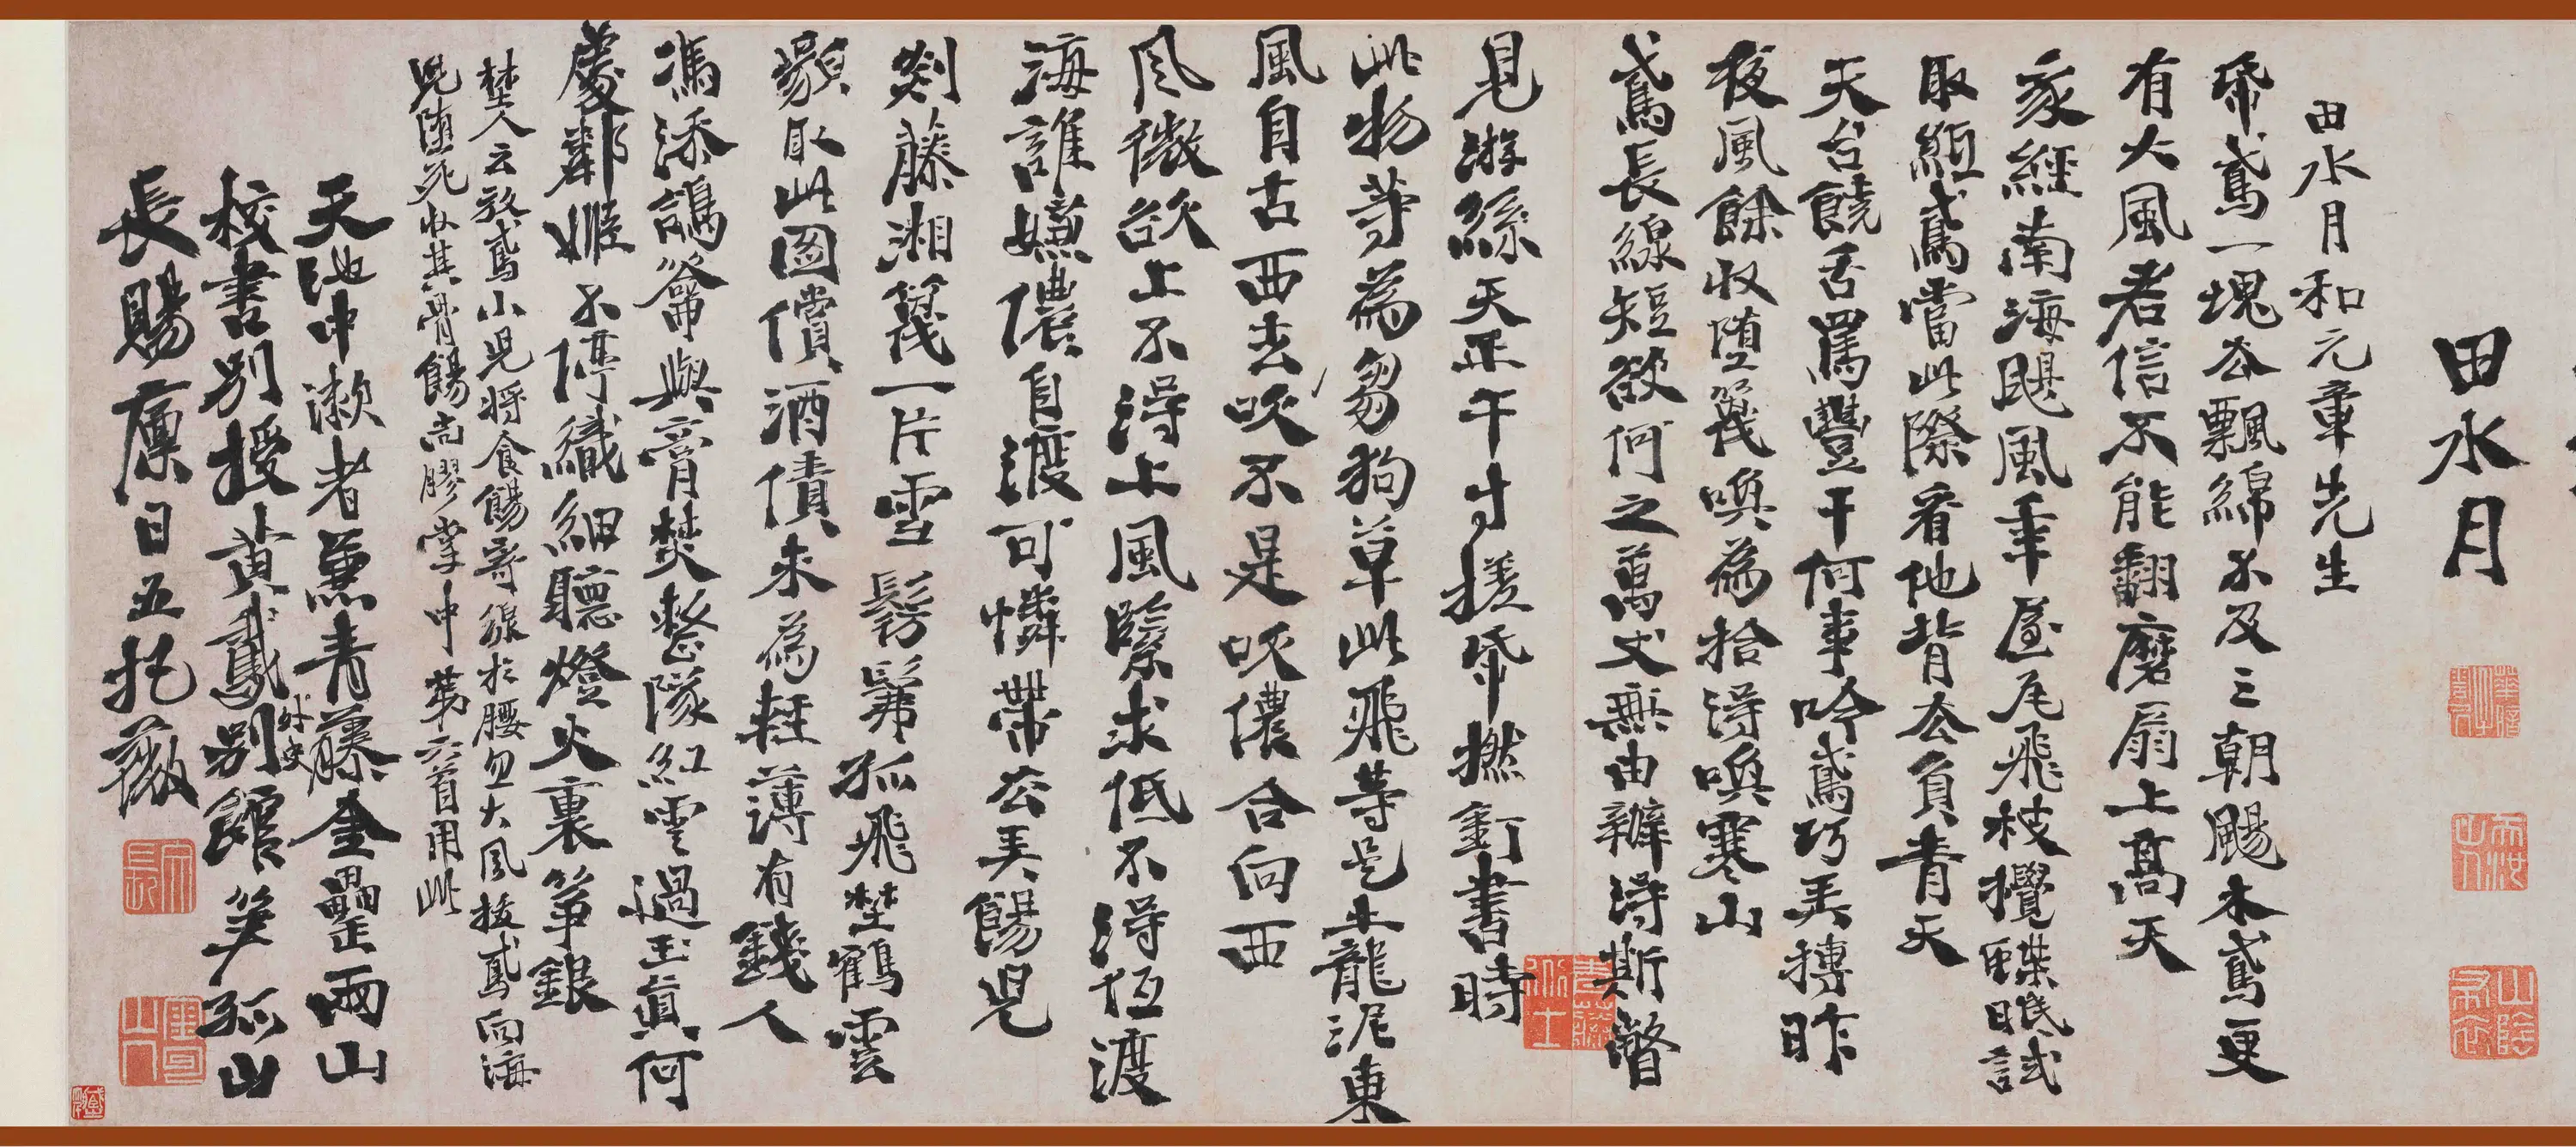 田水月
田水月和元章先生
紙鳶一塊去飄綿不及三朝颺木鳶更
有大風者信不能翻磨扇上高天
家經南海颶風年屋尾飛枝攪
取絙鳶當此際看他背去負青天
天台饒舌罵豐干何事吟鳶巧弄摶昨
夜風餘收墮篾喚為拾得喚寒山
鳶長線短欲何之萬丈無由辦得斯瞥
見游絲天正午寸搓紙撚釘書時
此物等為芻狗草此飛等是土龍泥東
風自古西去吹不是吹儂合向西
風微欲上不得上風緊求低不得低渡
海誰嫌儂自渡可憐帶公弄餳兒
剡藤湘篾一片雪髣髴孤飛埜鶴雲
顥取此圖償酒債未為輕薄有錢人
馮添鴿籥與膏焚整隊紅雲過玉真何
處鄰姬不停織細聽燈火裏箏銀
楚人云放鳶小兒將食餳寄線於腰忽大風拔鳶向海
兒墮死收其骨餳尚膠掌中第六首用此
天池中漱者兼青藤金罍兩山
校書別授黃鳶外史別館筆孤山
長賜廩日五托薇